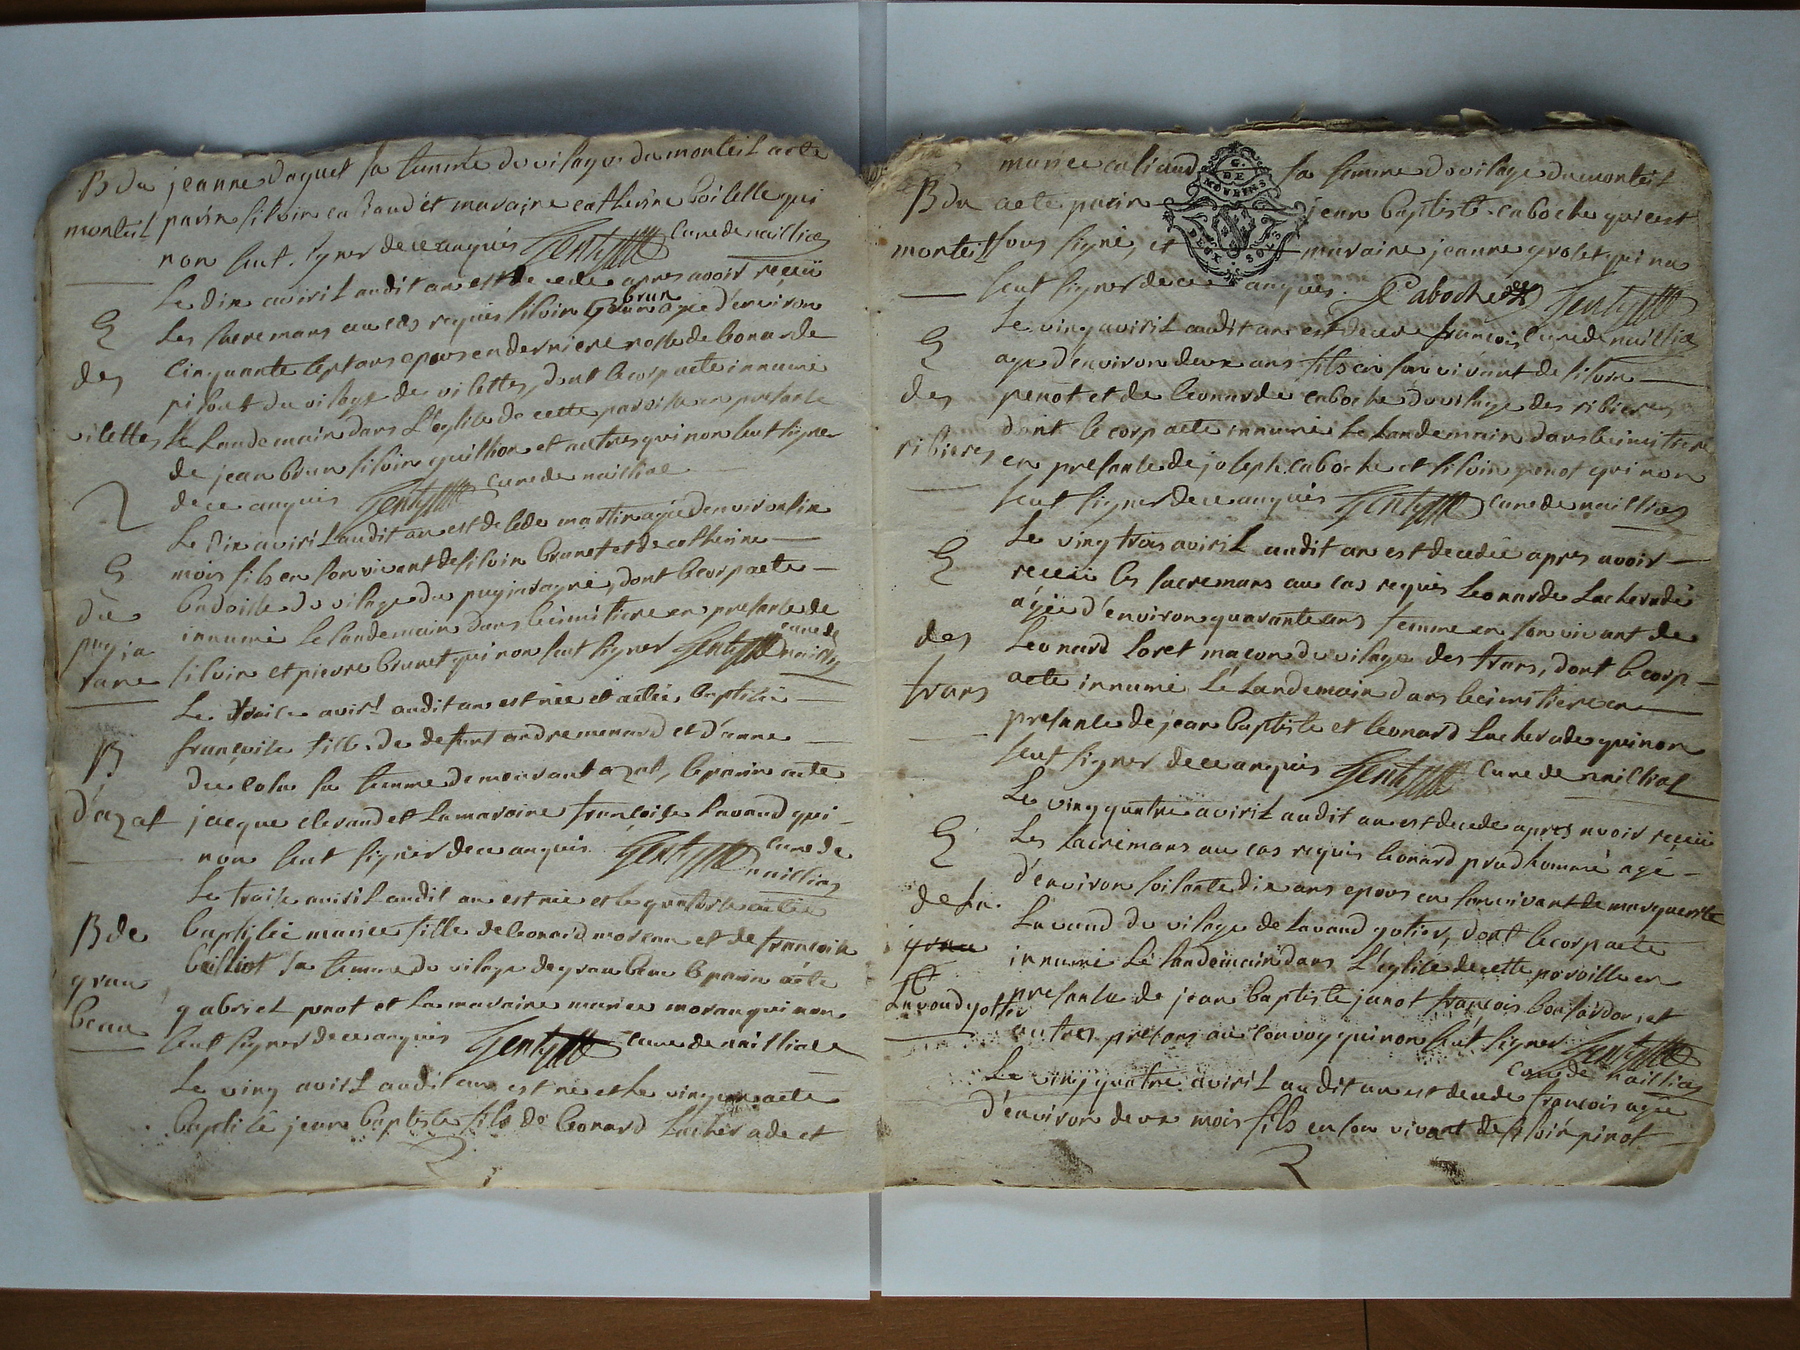 B du jeanne daguet sa femme du vilage du monteil acte
monteil parin silvin caliaud et maraine catherine boilelle qui
non sceut signer de ce anquis Genty curé de nailliac
Le dix aviril audit an est decede apres avoir reçeü
E les sacremans au cas requis silvin brun age d'environ
des cinquante sept ans epous en derniere nosse de leonarde
pilout du vilage de vilettes, dont le corp aete innumé
vilettes le landemain dans l'eglise de cette paroisse en presance
de jean brun silvin guillion et autres qui non seut signer
de ce anquis Genty curé de nailliac
Le dix aviril audit an est decede martin agé d'environ six
E mois fils en son vivant de silvin brunet et de catherine
du badoille du vilage du puyjavagne, dont le corp aete
puyja innumé le landemain dans le cimitiere en presance de
rane silvin et pierre brunet qui non seut signer Genty curé de nailliac
Le traise aviril audit an est née et aetée baptisée
B françoise fille de defunt andre menard et d'anne
sa femme demeurant azat, le parin aete
d'azat jacque clavaud et la maraine françoise lavaud qui
non seut signer de ce anquis Genty curé de nailliac
Le traise aviril audit an est née et le quatorse aetée
B de baptisée mariee fille de leonard moreau et de françoise
grau bailliot sa femme du vilage de grau beau le parin aete
beau gabriel penot et la maraine mariee moreau qui non
seut signer de ce anquis Genty curé de nailliac
Le ving aviril audit an est né et le vingun aete
baptisé jean baptiste fils de leonard lacherade et
mariee caliaud sa femme du vilage du monteil
B du aete parin jean baptiste caboche qui cest
monteil sous signé, et maraine jeanne grolet qui na
seut signer de ce anquis. Caboche Genty
G. DE MOULINS
DEUX SOLS
Le ving aviril audit an est decede françois curé de nailliac
E age d'environ deux ans fils en son vivant de silvin
des penot et de leonarde caboche du vilage des ribieres
ribieres dont le corp aete innumé le landemain dans le cimitiere
en presance de joseph caboche et silvin penot qui non
seut signer de ce anquis Genty curé de nailliac
Le ving trois aviril audit an est decedée apres avoir
E reçeüe les sacremans au cas requis leonarde lacherade
agée d'environ quarante ans femme en son vivant de
des leonard loret maçon du vilage des trans, dont le corp
trans aete innumé le landemain dans le cimitiere en
presance de jean baptiste et leonard lacherade qui non
seut signer de ce anquis Genty curé de nailliac
Le ving quatre aviril audit an est decede apres avoir reçeü
E les sacremans au cas requis leonard prudhomme agé
d'environ soisante dix ans epous en son vivant de marguerite
de la lavaud du vilage de lavaud gotier, dont le corp aete
innumé le landemain dans l'eglise de cette paroisse en
lavaud gotier presance de jean baptiste janot françois bonsardon et
autres presans au convoy qui non seut signer Genty
curé de nailliac
Le ving quatre aviril audit an est decede françois agé
d'environ deux mois fils en son vivant de silvin pinot